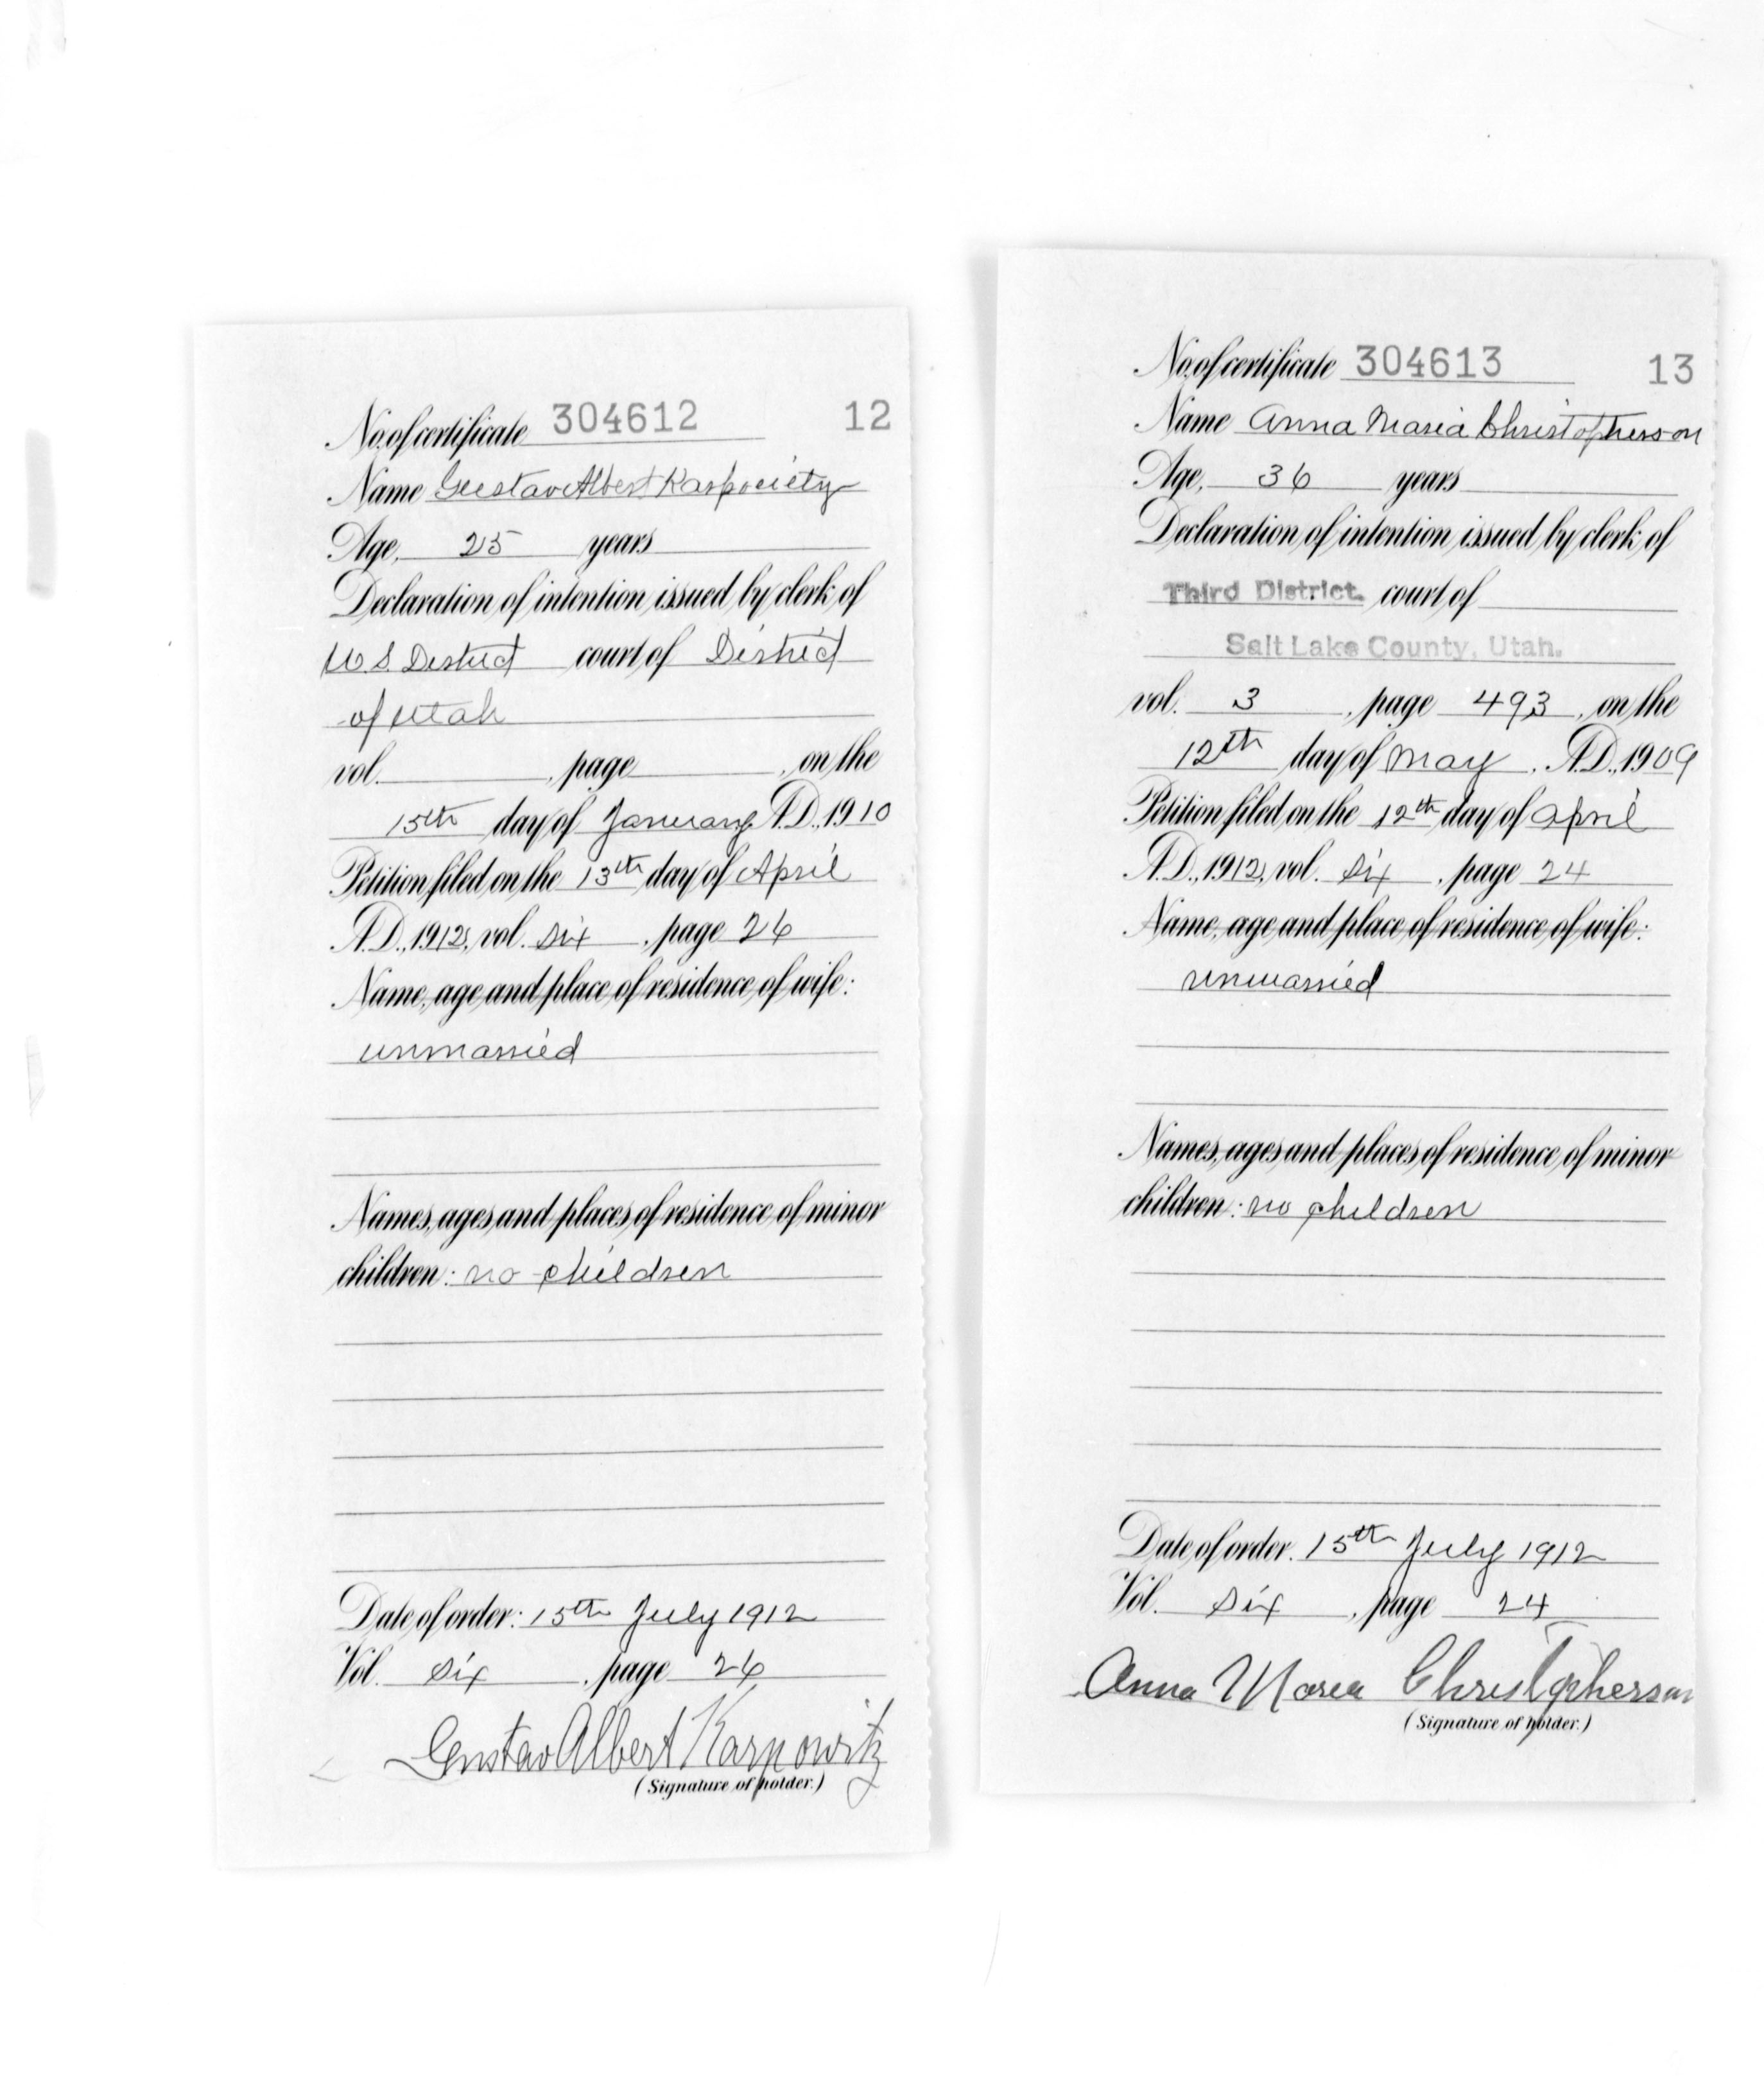 No. of certificate 304612 12
Name Gustav Albert Karpowitz
Age, 25 years
Declaration of intention issued by clerk of
U.S. District court of District
of Utah
vol. , page , on the
15th day of January A.D., 1910
Petition filed on the 13th day of April
A.D., 1912, vol. six , page 26
Name, age and place of residence of wife:
unmarried
Names, ages and places of residence of minor
children: no children
Date of order: 15th July 1912
Vol. six , page 26
Gustav Albert Karpowitz
(Signature of holder.)
No. of certificate 304613 13
Name Anna Maria Christopherson
Age, 36 years
Declaration of intention issued by clerk of
Third District. court of
Salt Lake County, Utah.
vol. 3 , page 493 , on the
12th day of May , A.D., 1909
Petition filed on the 12th day of April
A.D., 1912, vol. six , page 24
Name, age and place of residence of wife:
unmarried
Names, ages and places of residence of minor
children: no children
Date of order. 15th July 1912
Vol. six , page 24
Anna Maria Christopherson
(Signature of holder.)